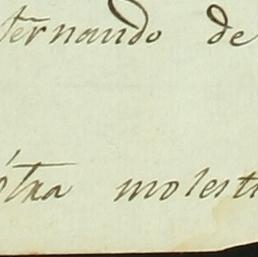 fernando de
ótra molest